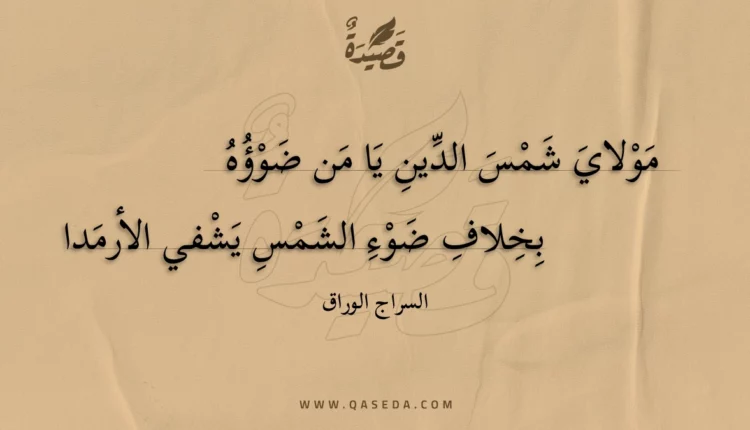 قَصِيْدَةٌ
مَوْلايَ شَمْسَ الدِّينِ يَا مَن ضَوْؤُهُ
بِخِلافِ ضَوْءِ الشَمْسِ يَشْفي الأرمَدا
السراج الوراق
WWW.QASEDA.COM